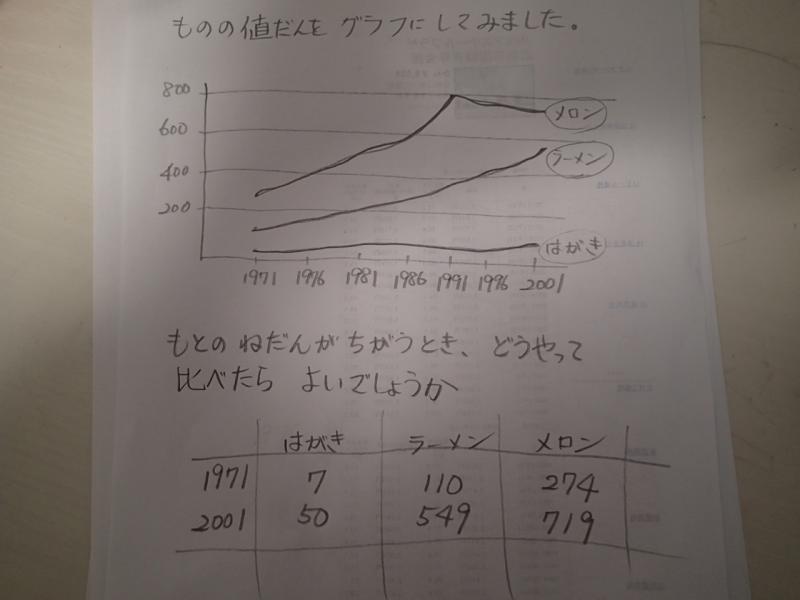 ものの値だんを グラフに してみました。
800
600
400
200
メロン
ラーメン
はがき
1971 1976 1981 1986 1991 1996 2001
もとの ねだんが ちがうとき、 どうやって
比べたら よいでしょうか
はがき ラーメン メロン
1971 7 110 274
2001 50 549 719